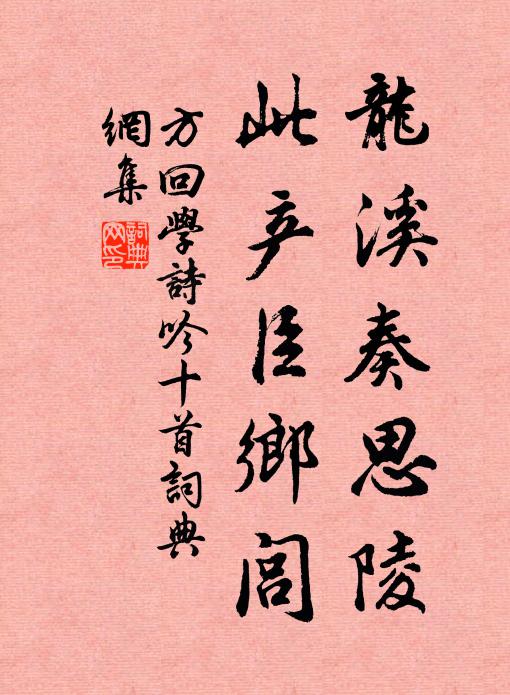 龍溪奏思陵
此産臣鄉閭
方回學詩吟十首詞典
網集
詞典網印